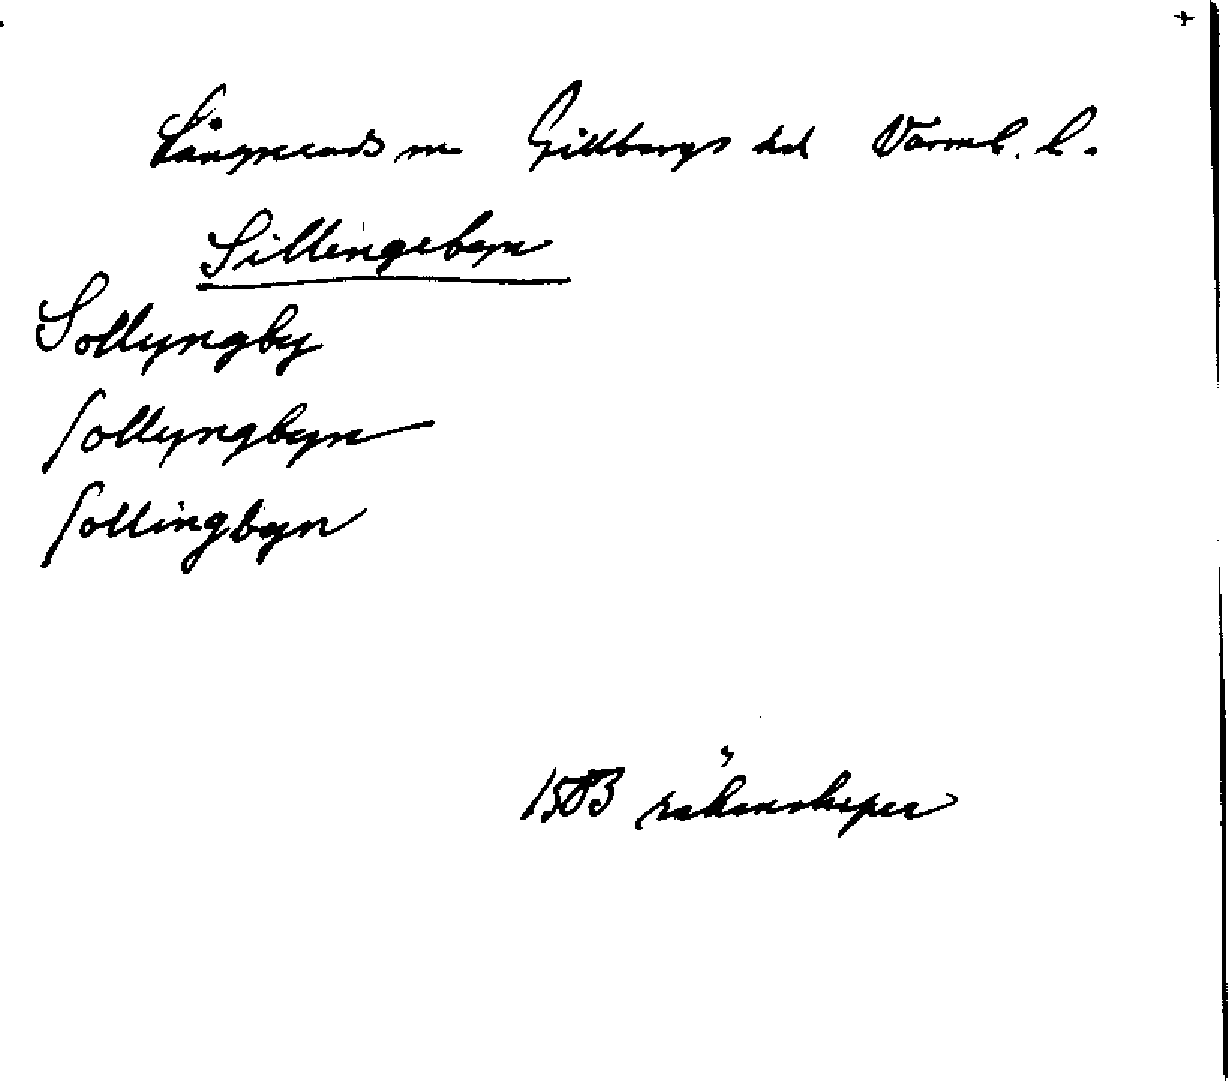 +
Långseruds sn Gillbergs hd Värml. l.
Sillingebyn
Sollyngby
sollyngbyn
sollingbyn
1503 räkenskaper